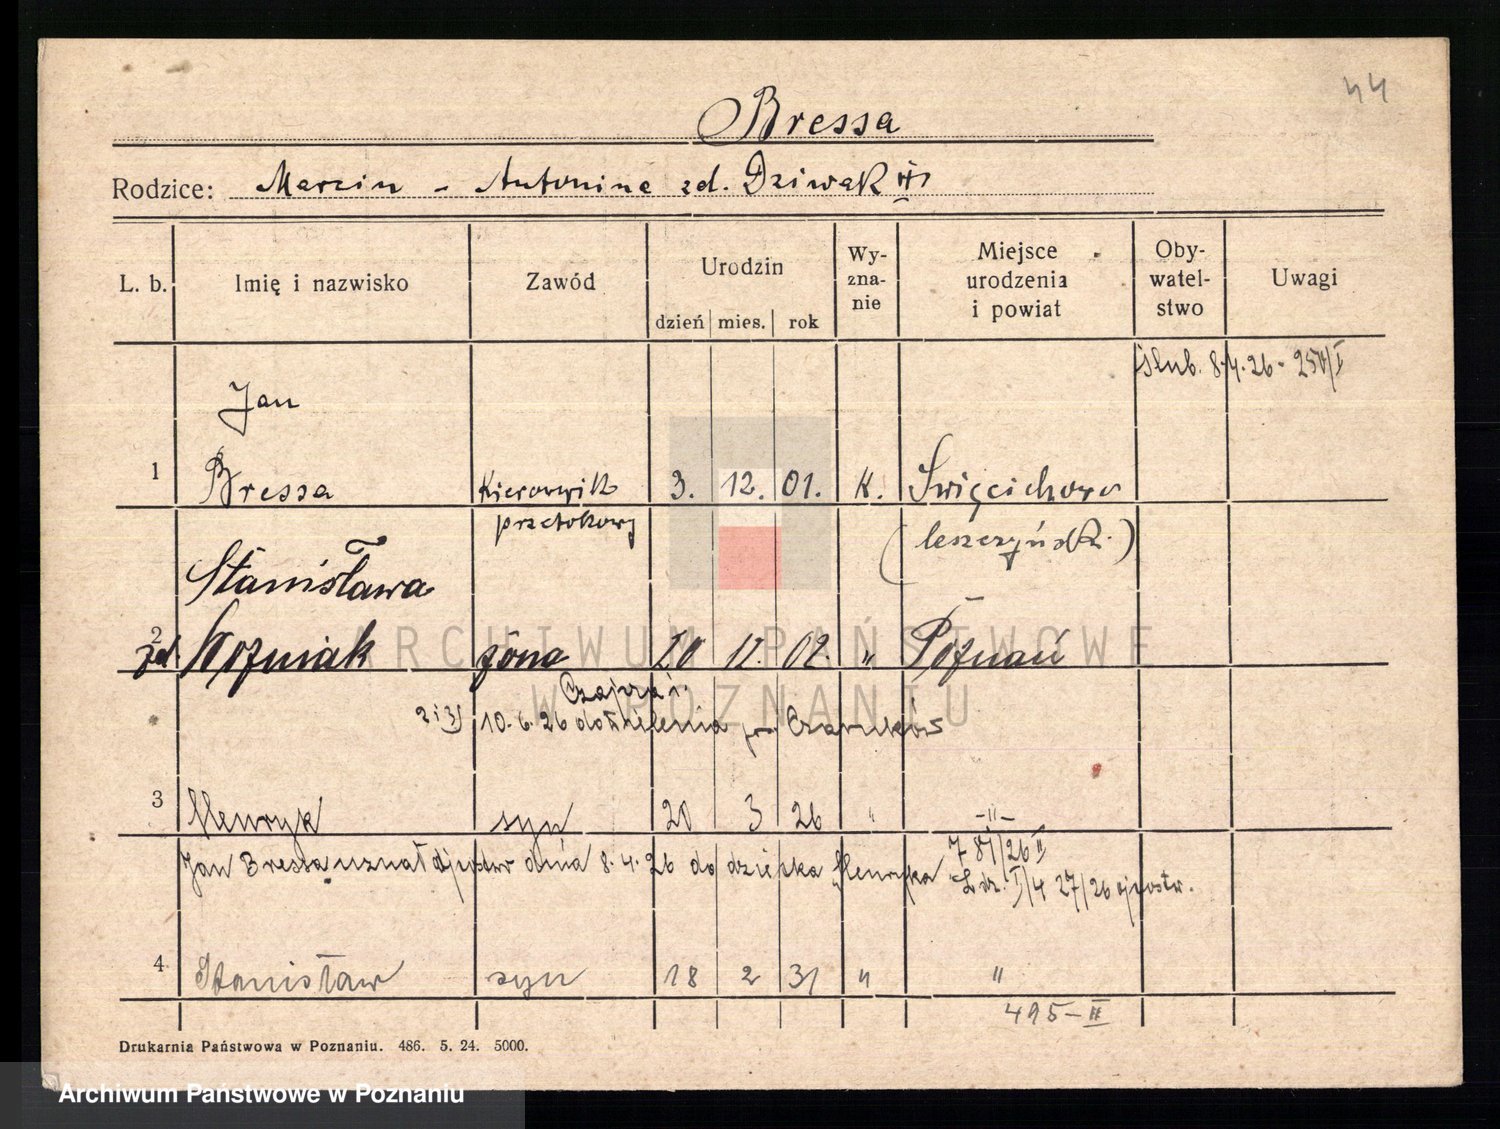 44
Bressa
Rodzice: Marcin - Antonina zd. Dziwak
L. b. Imię i nazwisko Zawód Urodzin dzień mies. rok Wy-zna-nie Miejsce urodzenia i powiat Oby-watel-stwo Uwagi
Ślub. 8.4.26 -
Jan
1 Bressa Kierownik 3. 12. 01. K. Święcichowo
przetokowy (leszczyńsk.)
Stanisława
2 zd. Woźniak żona 20 12. 02. " Poznań
2 i 3) 10.6.26 do Czarnków
3 Henryk syn 20 3 26 " -"-
781/26 II
Jan Bressa uznał ojcostw dnia 8.4.26 do dziecka Henryka L.dz. I/4 27/26 ojcostw.
4 Stanisław syn 18 2 31 " "
495-II
Drukarnia Państwowa w Poznaniu. 486. 5. 24. 5000.
ARCHIWUM PAŃSTWOWE
W POZNANIU
Archiwum Państwowe w Poznaniu